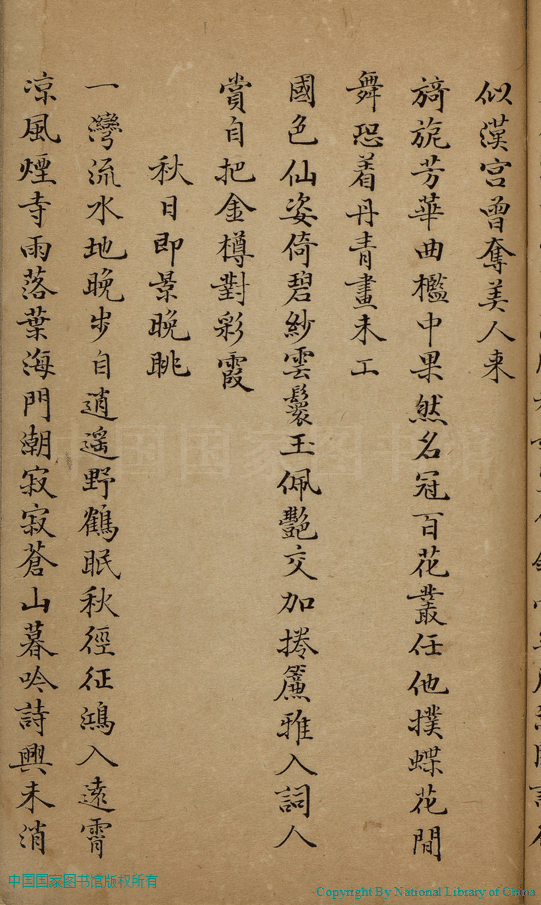 似漢宮曾奪美人來
旖旎芳華曲檻中果然名冠百花叢任他撲蝶花間
舞恐着丹青畫未工
國色仙姿倚碧紗雲鬟玉佩艷交加捲簾雅入詞人
賞自把金樽對彩霞
秋日即景晚眺
一灣流水地晚步自逍遙野鶴眠秋徑征鴻入遠霄
凉風煙寺雨落葉海門潮寂寂蒼山暮吟詩興未消
中国国家图书馆
中国国家图书馆版权所有
Copyright By National Library of China